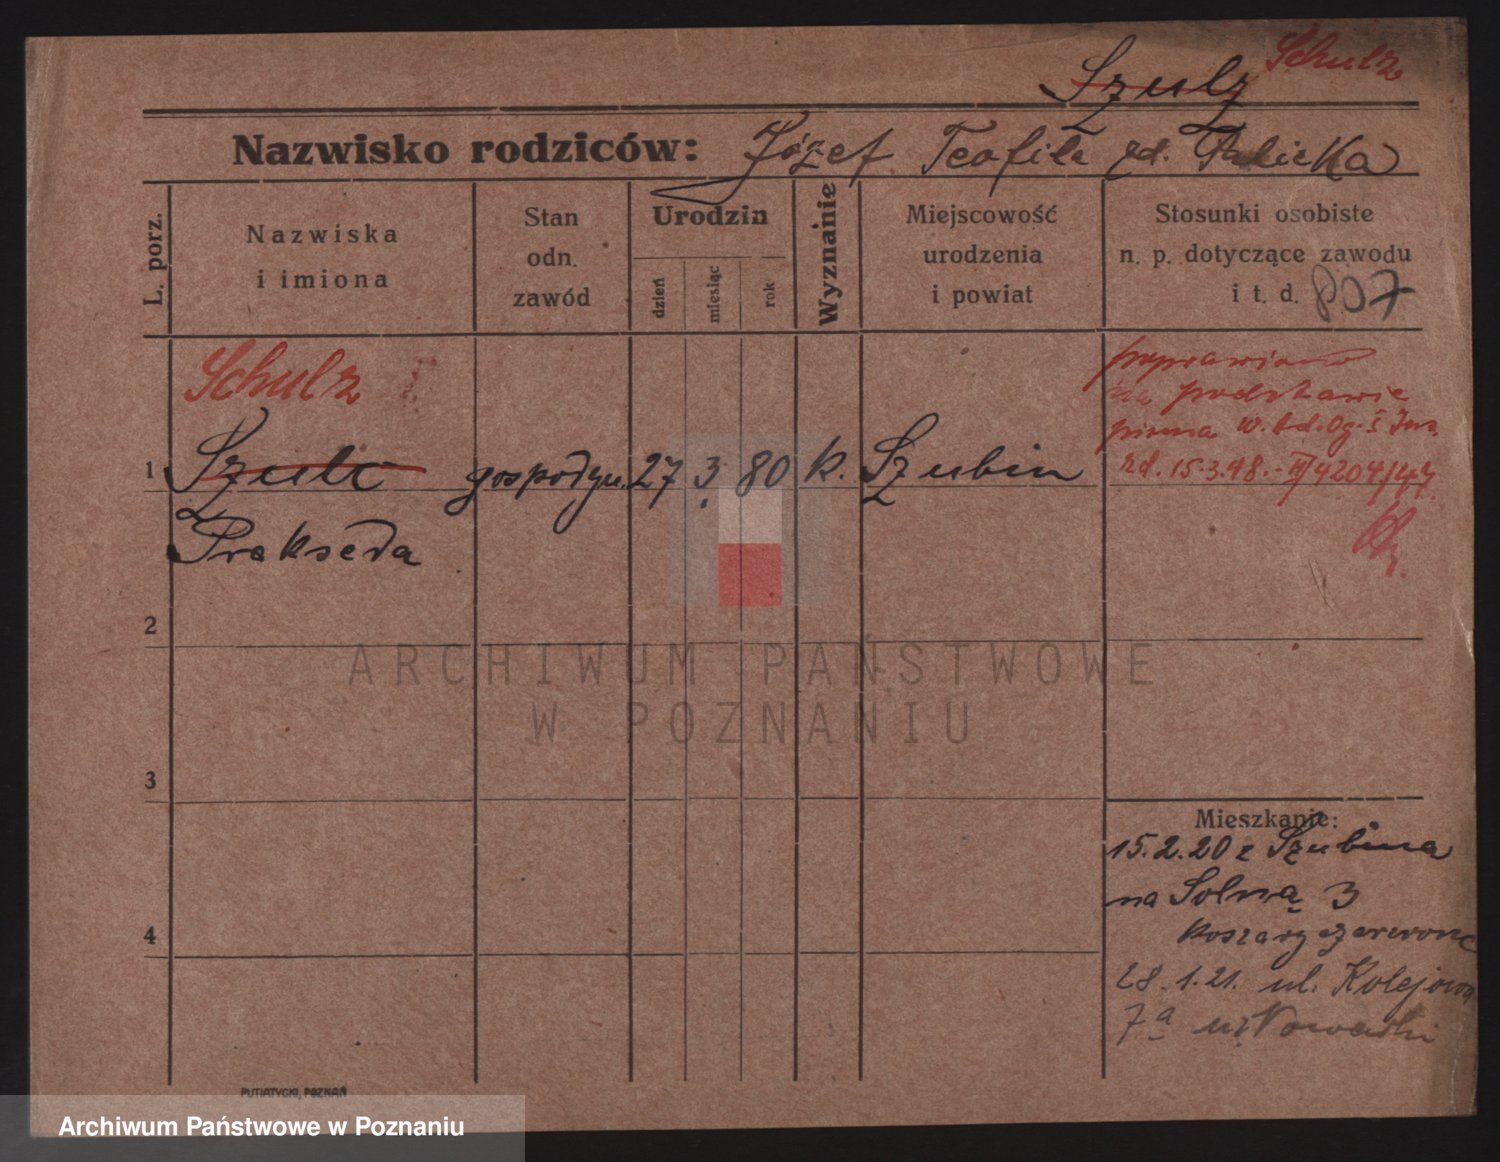 Szulz Schulz
Nazwisko rodziców: Józef Teofila zd.
L. porz.
Nazwiska
i imiona
Stan
odn.
zawód
Urodzin
dzień
miesiąc
rok
Wyznanie
Miejscowość
urodzenia
i powiat
Stosunki osobiste
n. p. dotyczące zawodu
i t. d. 807
Schulz
1 Szulc gospodyn. 27 3. 80 k. Szubin
Prakseda
poprawiono
na podstawie
pisma
zd. 15.3.48. - II/4204/47.
2
3
4
Mieszkanie:
15.2.20 z Szubina
na Solną 3
koszary czerwone
28.1.21. ul. Kolejowa
7a
PUTIATYCKI, POZNAŃ
ARCHIWUM PAŃSTWOWE
W POZNANIU
Archiwum Państwowe w Poznaniu